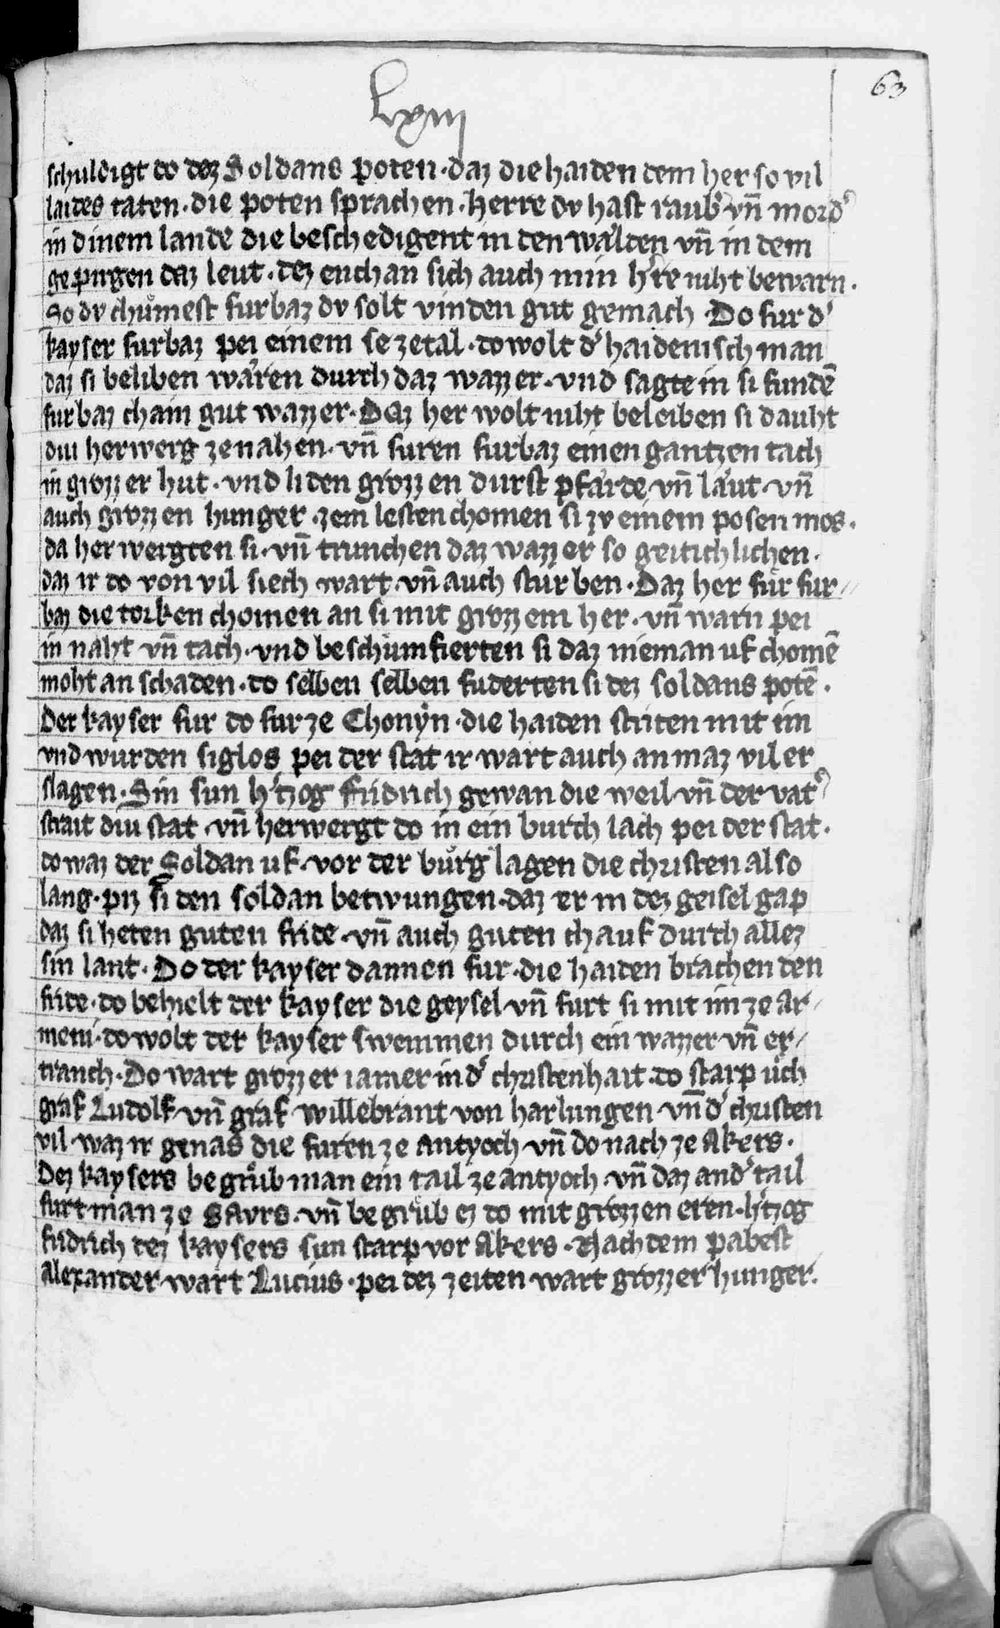 lxiii
63
schuldigt do dez Soldans poten · daz die haiden dem her so vil
laides taten · die poten sprachen · herre dv hast raub' vñ mord'
in dinem lande die beschedigent in den wälden vñ in dem
gepirgen daz leut · dez ench an sich auch min h're niht bewarn ·
So dv chůmest furbaz dv solt vinden gut gemach · Do fur d'
kayser furbaz pei einem sezetal · do wolt d' haidenisch man
daz si beliben wären durch daz wazzer · vnd sagte in si fundē
furbaz chain gut wazzer · Daz her wolt niht beleiben si dauht
diu herwerg ze nahen · vñ furen furbaz einen gantzen tach
in grozzer hut · vnd liden grozzen durst pfärde vñ läut · vñ
auch grozzen hunger · zem lesten chomen si zv einem posen mos ·
da herwergten si · vñ trunchen daz wazzer so geitichlichen ·
daz ir do von vil siech wart · vñ auch sturben · Daz her fůr fur-
baz die torken chomen an si mit grozzem her · vñ warn pei
in naht vñ tach · vnd beschumfierten si daz nieman uf chomē
moht an schaden · do selben selben fuderten si dez soldans potē ·
Der kayser fur do fur ze Chonÿn · die haiden striten mit im
vnd wurden siglos pei der stat ir wart auch an maz vil er
slagen · Sin sun h'tzog fridrich gewan die weil vñ der vat'
strait diu stat · vñ herwergt do in ein burch lach pei der stat ·
do waz der Soldan uf · vor der bůrg lagen die christen also
lang · piz si den soldan betwungen · daz er in dez geisel gap
daz si heten guten fride · vñ auch guten chauf durch allez
sin lant · Do der kayser dannen fur · die haiden brachen den
fride · do behielt der kayser die geysel · vñ furt si mit im ze Ar-
meni · do wolt der kayser swemmen durch ein wazzer vñ er-
tranch · Do wart grozzer iamer in d' christenhait · do starp ůch
graf Ludolf · vñ graf willebrant von harlungen · vñ d' christen
vil · waz ir genas die furen ze Antyoch vñ do nach ze Akers ·
Dez kaysers begrůb man ein tail ze antyoch · vñ daz and' tail
furt man ze Savrs · vñ begrůb ez do mit grozzen eren · h'tzog
fridrich dez kaysers sun starp vor Akers · Nach dem pabest
Alexander wart Lucius · pei dez zeiten wart grozzer hunger ·